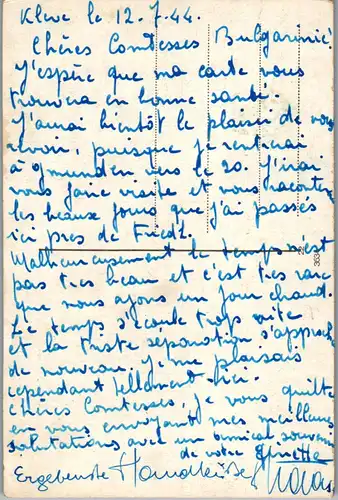 Kleve le 12.7.44.
Chères Comtesses Bulgarinič
J'espère que ma carte vous
trouvera en bonne santé.
J'aurai bientôt le plaisir de vous
revoir, puisque je rentrerai
à Gmunden vers le 20. J'irai
vous faire visite et vous raconter
les beaux jours que j'ai passés
ici près de Friedl.
Malheureusement le temps n'est
pas très beau et c'est très rare
que nous ayons un jour chaud.
Le temps s'écoule trop vite
et la triste séparation s'approche
de nouveau, je me plaisais
cependant tellement ici.
Chères Comtesses, je vous quitte
en vous envoyant mes meilleures
salutations avec un amical souvenir
de votre Ginette
Ergebenste Handküsse
363